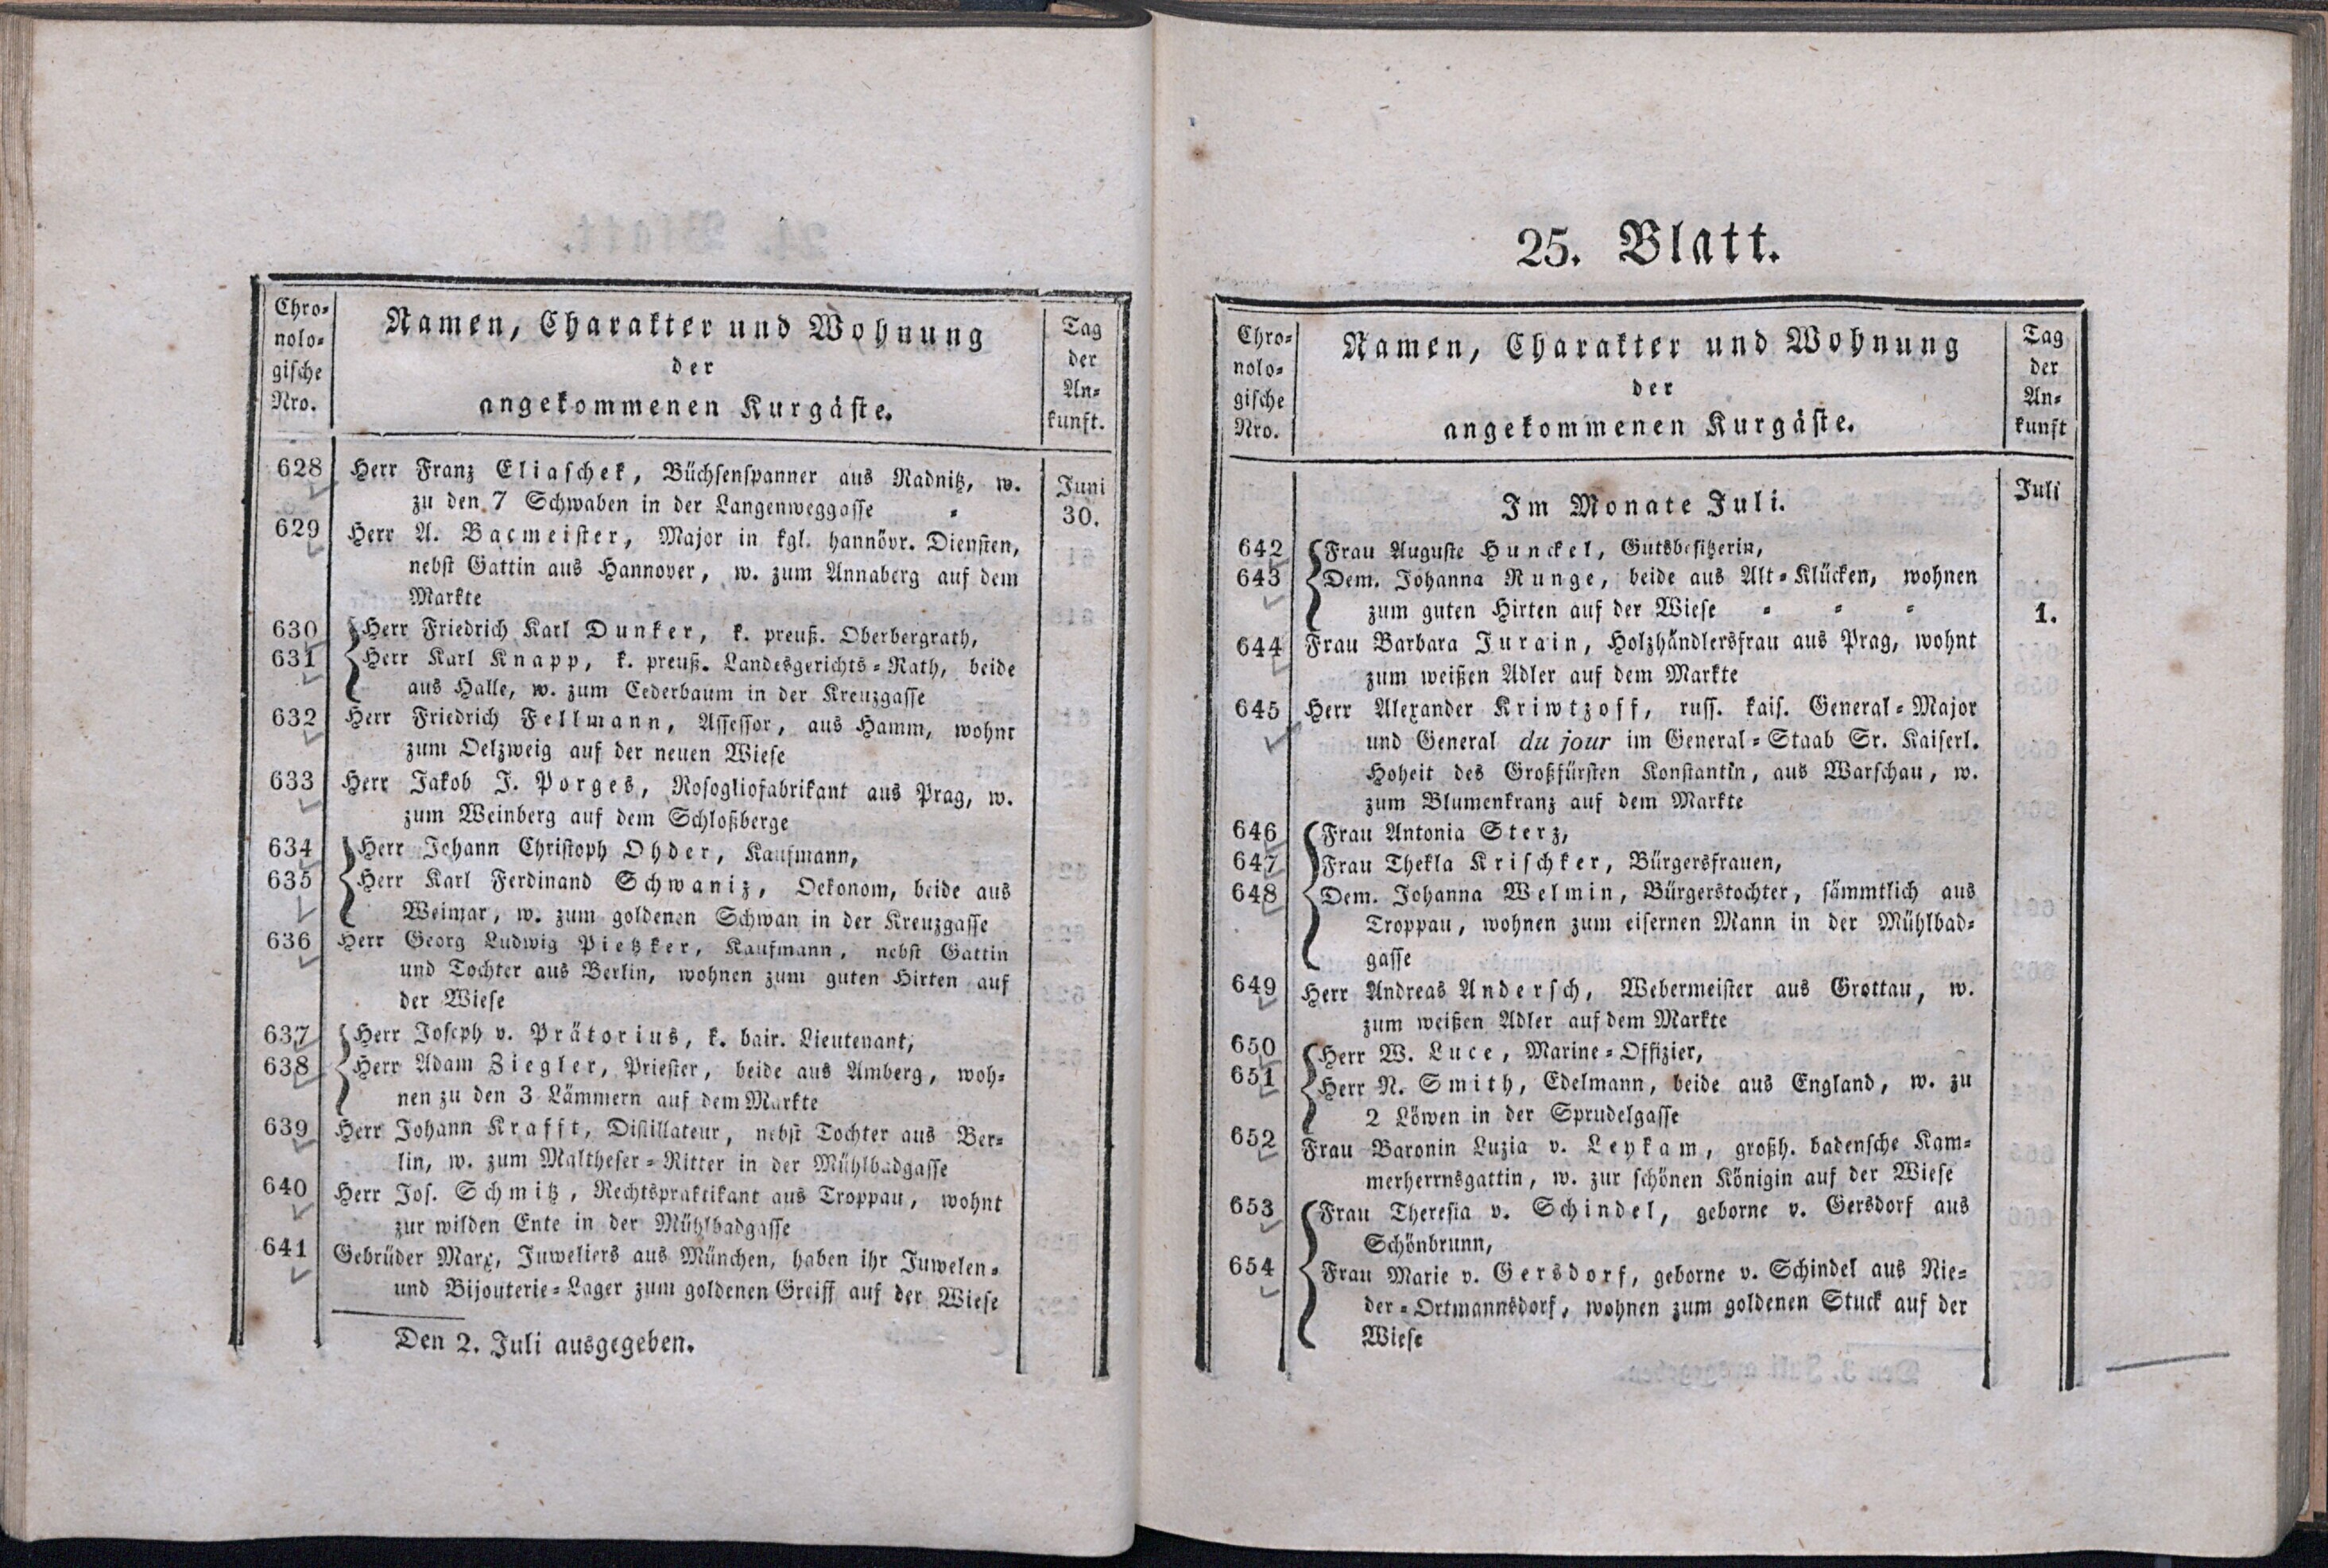 Chro-
nolo-
gische
Nro.
Namen, Charakter und Wohnung
der
angekommenen Kurgäste.
Tag
der
An-
kunft.
628 Herr Franz Eliaschek, Büchsenspanner aus Radnitz, w.
zu den 7 Schwaben in der Langenweggasse -
Juni
30.
629 Herr A. Bacmeister, Major in kgl. hannövr. Diensten,
nebst Gattin aus Hannover, w. zum Annaberg auf dem
Markte
630 Herr Friedrich Karl Dunker, k. preuß. Oberbergrath,
631 Herr Karl Knapp, k. preuß. Landesgerichts-Rath, beide
aus Halle, w. zum Cederbaum in der Kreuzgasse
632 Herr Friedrich Fellmann, Assessor, aus Hamm, wohnt
zum Oelzweig auf der neuen Wiese
633 Herr Jakob J. Porges, Rosogliofabrikant aus Prag, w.
zum Weinberg auf dem Schloßberge
634 Herr Johann Christoph Ohder, Kaufmann,
635 Herr Karl Ferdinand Schwaniz, Oekonom, beide aus
Weimar, w. zum goldenen Schwan in der Kreuzgasse
636 Herr Georg Ludwig Pietzker, Kaufmann, nebst Gattin
und Tochter aus Berlin, wohnen zum guten Hirten auf
der Wiese
637 Herr Joseph v. Prätorius, k. bair. Lieutenant,
638 Herr Adam Ziegler, Priester, beide aus Amberg, woh-
nen zu den 3 Lämmern auf dem Markte
639 Herr Johann Krafft, Distillateur, nebst Tochter aus Ber-
lin, w. zum Maltheser-Ritter in der Mühlbadgasse
640 Herr Jos. Schmitz, Rechtspraktikant aus Troppau, wohnt
zur wilden Ente in der Mühlbadgasse
641 Gebrüder Marx, Juweliers aus München, haben ihr Juwelen-
und Bijouterie-Lager zum goldenen Greiff auf der Wiese
Den 2. Juli ausgegeben.
25. Blatt.
Chro-
nolo-
gische
Nro.
Namen, Charakter und Wohnung
der
angekommenen Kurgäste.
Tag
der
An-
kunft
Im Monate Juli.
Juli
642 Frau Auguste Hunckel, Gutsbesitzerin,
643 Dem. Johanna Runge, beide aus Alt-Klücken, wohnen
zum guten Hirten auf der Wiese - - -
1.
644 Frau Barbara Jurain, Holzhändlersfrau aus Prag, wohnt
zum weißen Adler auf dem Markte
645 Herr Alexander Kriwtzoff, russ. kais. General-Major
und General du jour im General-Staab Sr. Kaiserl.
Hoheit des Großfürsten Konstantin, aus Warschau, w.
zum Blumenkranz auf dem Markte
646 Frau Antonia Sterz,
647 Frau Thekla Krischker, Bürgersfrauen,
648 Dem. Johanna Welmin, Bürgerstochter, sämmtlich aus
Troppau, wohnen zum eisernen Mann in der Mühlbad-
gasse
649 Herr Andreas Andersch, Webermeister aus Grottau, w.
zum weißen Adler auf dem Markte
650 Herr W. Luce, Marine-Offizier,
651 Herr N. Smith, Edelmann, beide aus England, w. zu
2 Löwen in der Sprudelgasse
652 Frau Baronin Luzia v. Leykam, großh. badensche Kam-
merherrnsgattin, w. zur schönen Königin auf der Wiese
653 Frau Theresia v. Schindel, geborne v. Gersdorf aus
Schönbrunn,
654 Frau Marie v. Gersdorf, geborne v. Schindel aus Nie-
der-Ortmannsdorf, wohnen zum goldenen Stuck auf der
Wiese